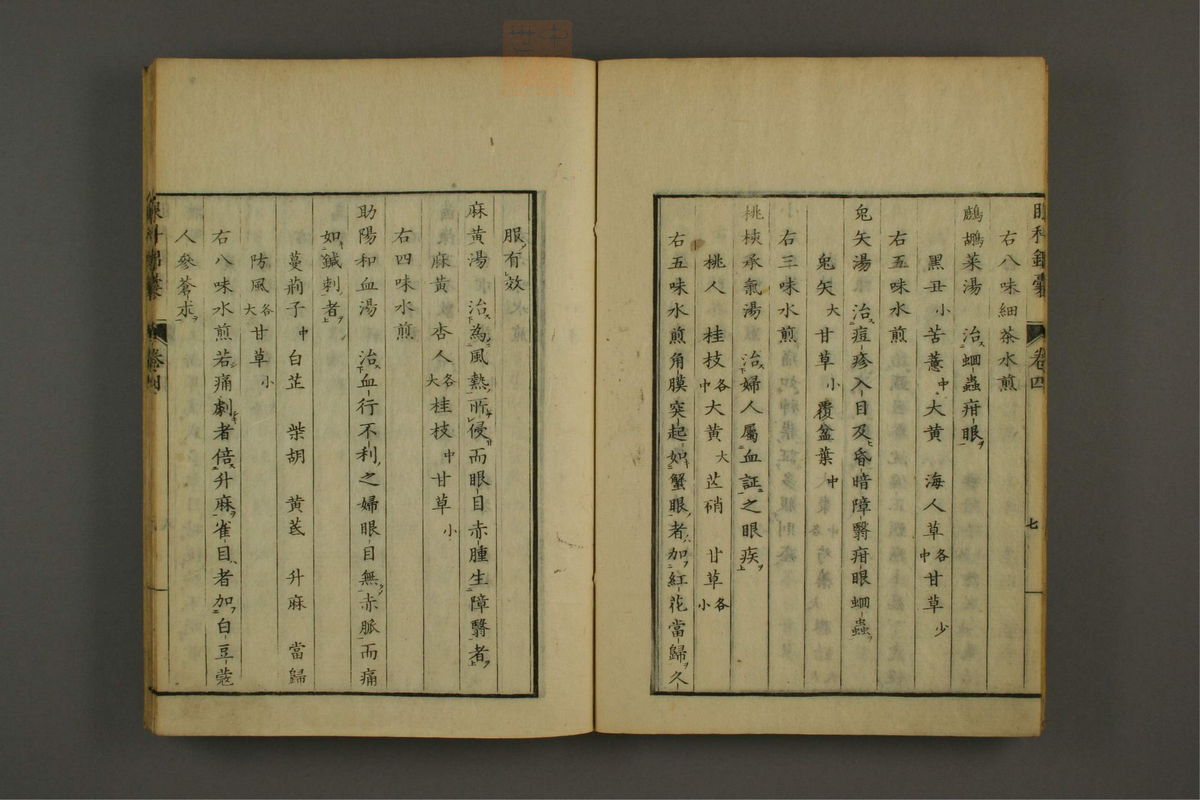 眼科錦囊 卷四 七
右八味細茶水煎
鷓鴣菜湯 治蛔蟲疳眼
黑丑小苦薏中大黃 海人草各中甘草少
右五味水煎
兔矢湯 治痘疹入目及昏暗障翳疳眼蛔蟲
兔矢大甘草小覆盆葉中
右三味水煎
桃核承氣湯 治婦人屬血証之眼疾
桃人 桂枝各中大黃大芒硝 甘草各小
右五味水煎角膜突起如蟹眼者加紅花當歸久
服有效
麻黃湯 治為風熱所侵而眼目赤腫生障翳者
麻黃杏人各大桂枝中甘草小
右四味水煎
助陽和血湯 治血行不利之婦眼目無赤脈而痛
如鍼刺者
蔓荊子中白芷 柴胡 黃芪 升麻 當歸
防風各大甘草小
右八味水煎若痛劇者倍升麻雀目者加白豆蔻
人參蒼朮
眼科錦囊 卷四